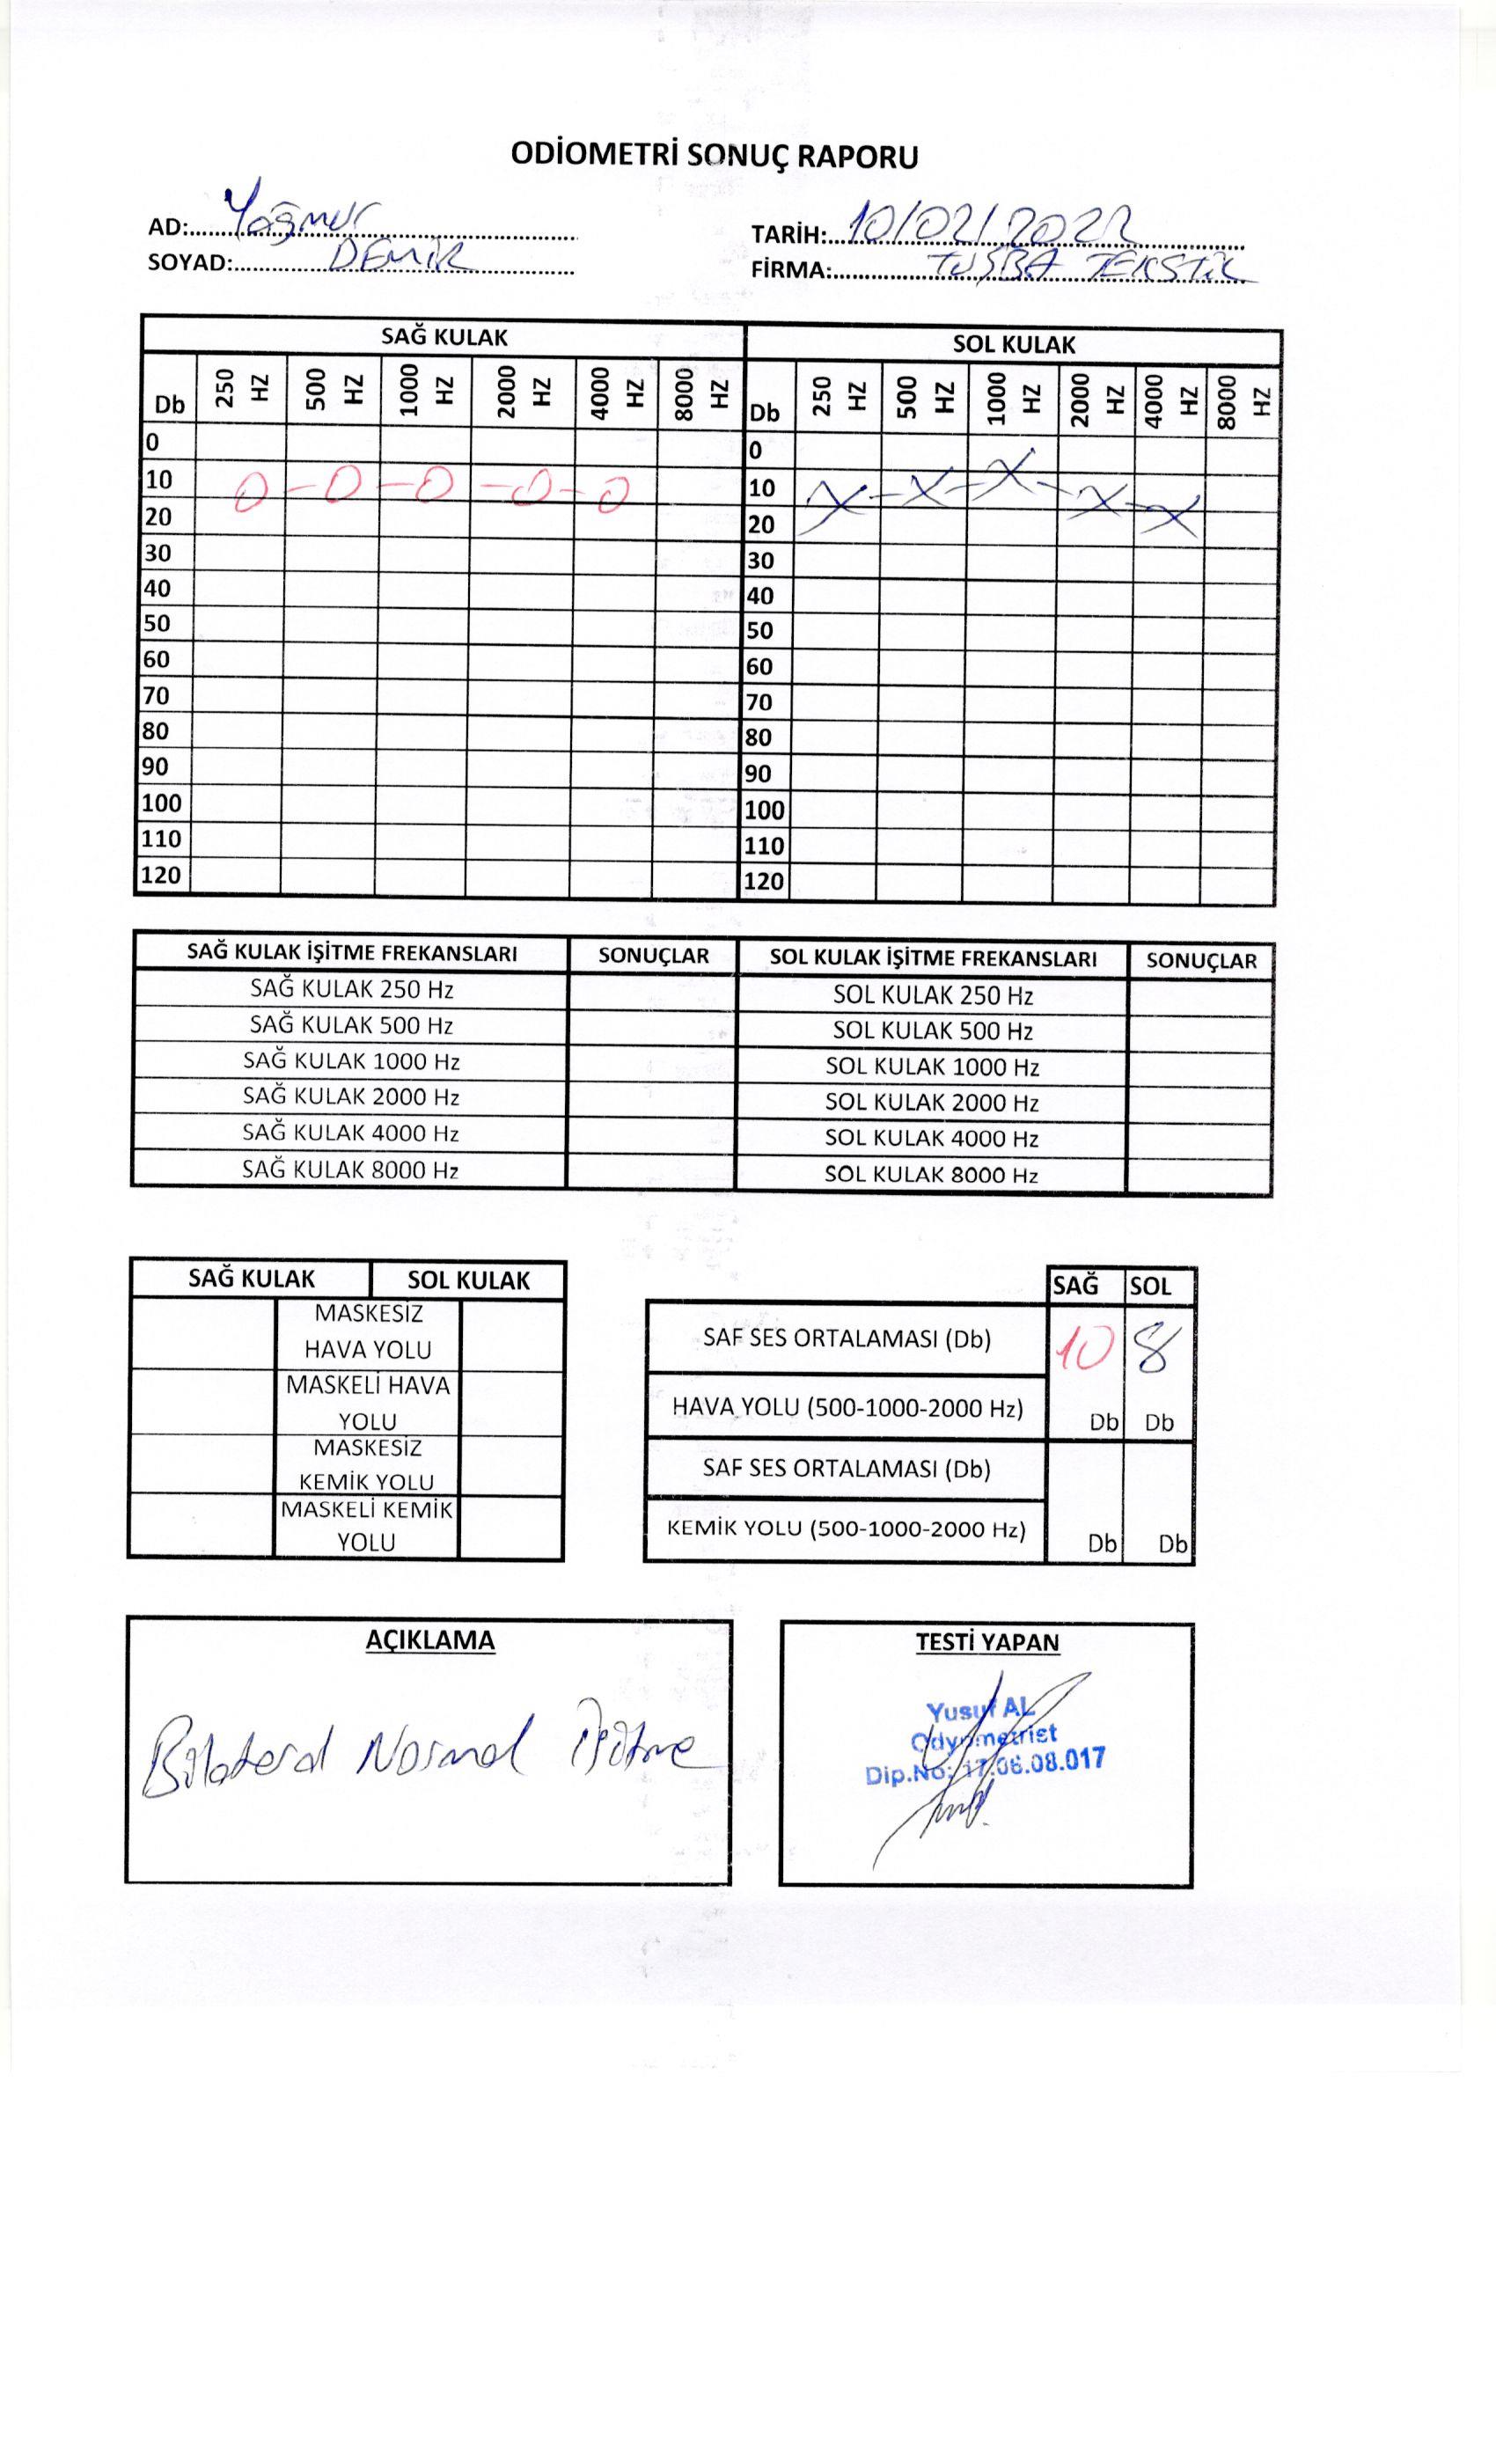 ODİOMETRİ SONUÇ RAPORU
AD: Yağmur
SOYAD: DEMİR
TARİH: 10/02/2022
FİRMA: TUŞBA TEKSTİL
SAĞ KULAK SOL KULAK
Db 250 HZ 500 HZ 1000 HZ 2000 HZ 4000 HZ 8000 HZ Db 250 HZ 500 HZ 1000 HZ 2000 HZ 4000 HZ 8000 HZ
0 0
10 O-O-O-O-O 10 X-X-X-X-X
20 20
30 30
40 40
50 50
60 60
70 70
80 80
90 90
100 100
110 110
120 120
SAĞ KULAK İŞİTME FREKANSLARI SONUÇLAR SOL KULAK İŞİTME FREKANSLARI SONUÇLAR
SAĞ KULAK 250 Hz SOL KULAK 250 Hz
SAĞ KULAK 500 Hz SOL KULAK 500 Hz
SAĞ KULAK 1000 Hz SOL KULAK 1000 Hz
SAĞ KULAK 2000 Hz SOL KULAK 2000 Hz
SAĞ KULAK 4000 Hz SOL KULAK 4000 Hz
SAĞ KULAK 8000 Hz SOL KULAK 8000 Hz
SAĞ KULAK SOL KULAK
MASKESİZ
HAVA YOLU
MASKELİ HAVA
YOLU
MASKESİZ
KEMİK YOLU
MASKELİ KEMİK
YOLU
SAĞ SOL
SAF SES ORTALAMASI (Db) 10 8
HAVA YOLU (500-1000-2000 Hz) Db Db
SAF SES ORTALAMASI (Db)
KEMİK YOLU (500-1000-2000 Hz) Db Db
AÇIKLAMA
Bilateral Normal İşitme
TESTİ YAPAN
Yusuf AL
Odyometrist
Dip.No: 17.06.08.017